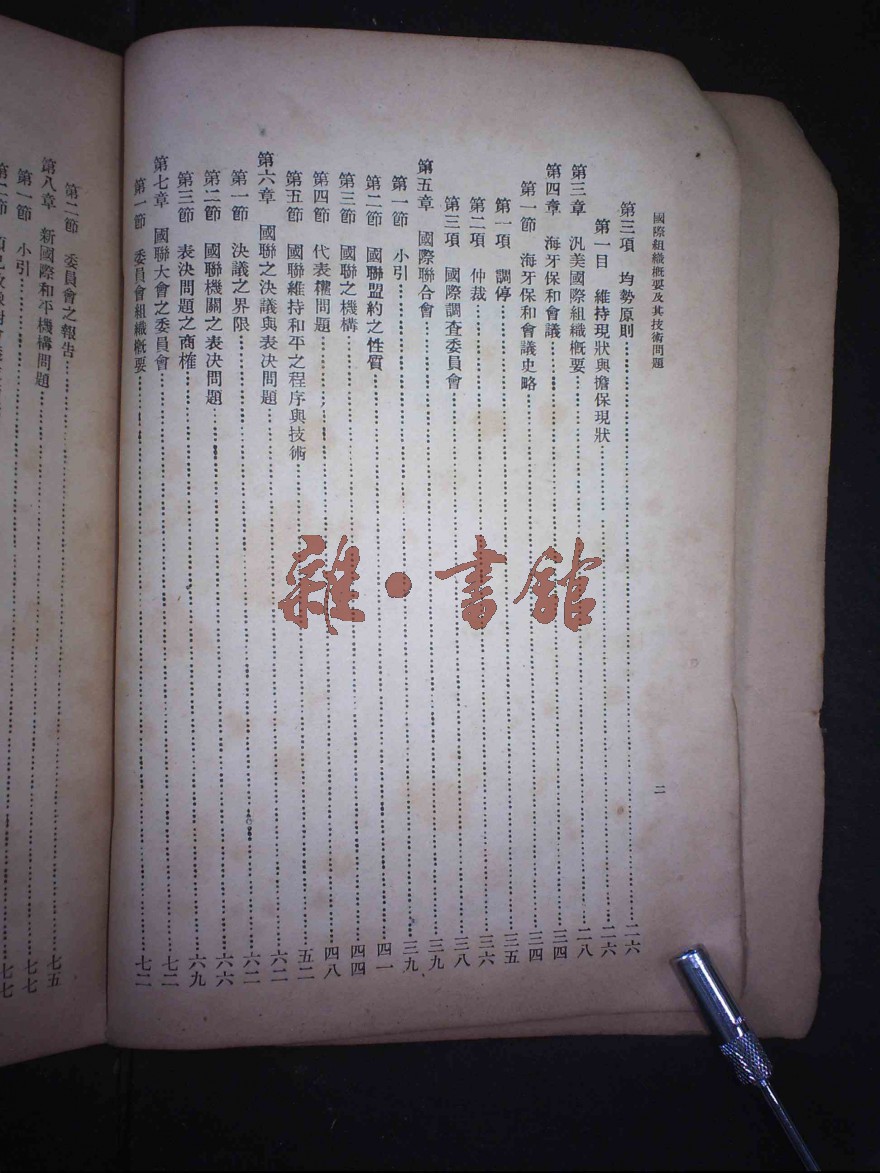 國際組織概要及其技術問題
二
第三項 均勢原則 二六
第一目 維持現狀與擔保現狀 二六
第三章 汎美國際組織概要 二八
第四章 海牙保和會議 三四
第一節 海牙保和會議史略 三四
第一項 調停 三五
第二項 仲裁 三六
第三項 國際調查委員會 三八
第五章 國際聯合會 三九
第一節 小引 三九
第二節 國聯盟約之性質 四一
第三節 國聯之機構 四四
第四節 代表權問題 四八
第五節 國聯維持和平之程序與技術 五二
第六章 國聯之決議與表決問題 六二
第一節 決議之界限 六二
第二節 國聯機關之表決問題 六六
第三節 表決問題之商榷 六九
第七章 國聯大會之委員會 七二
第一節 委員會組織概要 七二
第二節 委員會之報告 七五
第八章 新國際和平機構問題 七七
第一節 小引 七七
第二節
雜·書館